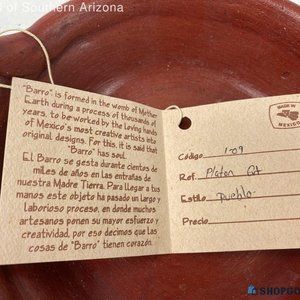 l of Southern Arizona
"Barro" is formed in the womb of Mother
Earth during a process of thousands of
years, to be worked by the Loving hands
of Mexico's most creative artists into
original designs. For this, it is said that
"Barro" has soul.
El Barro se gesta durante cientos de
miles de años en las entrañas de
nuestra Madre Tierra. Para llegar a tus
manos este objeto ha pasado un largo y
laborioso proceso, en donde muchos
artesanos ponen su mayor esfuerzo y
creatividad, por eso decimos que las
cosas de "Barro" tienen corazón.
MADE IN
MEXICO
Código 1-09
Ref. Platon
Estilo Pueblo
Precio
SHOPGO